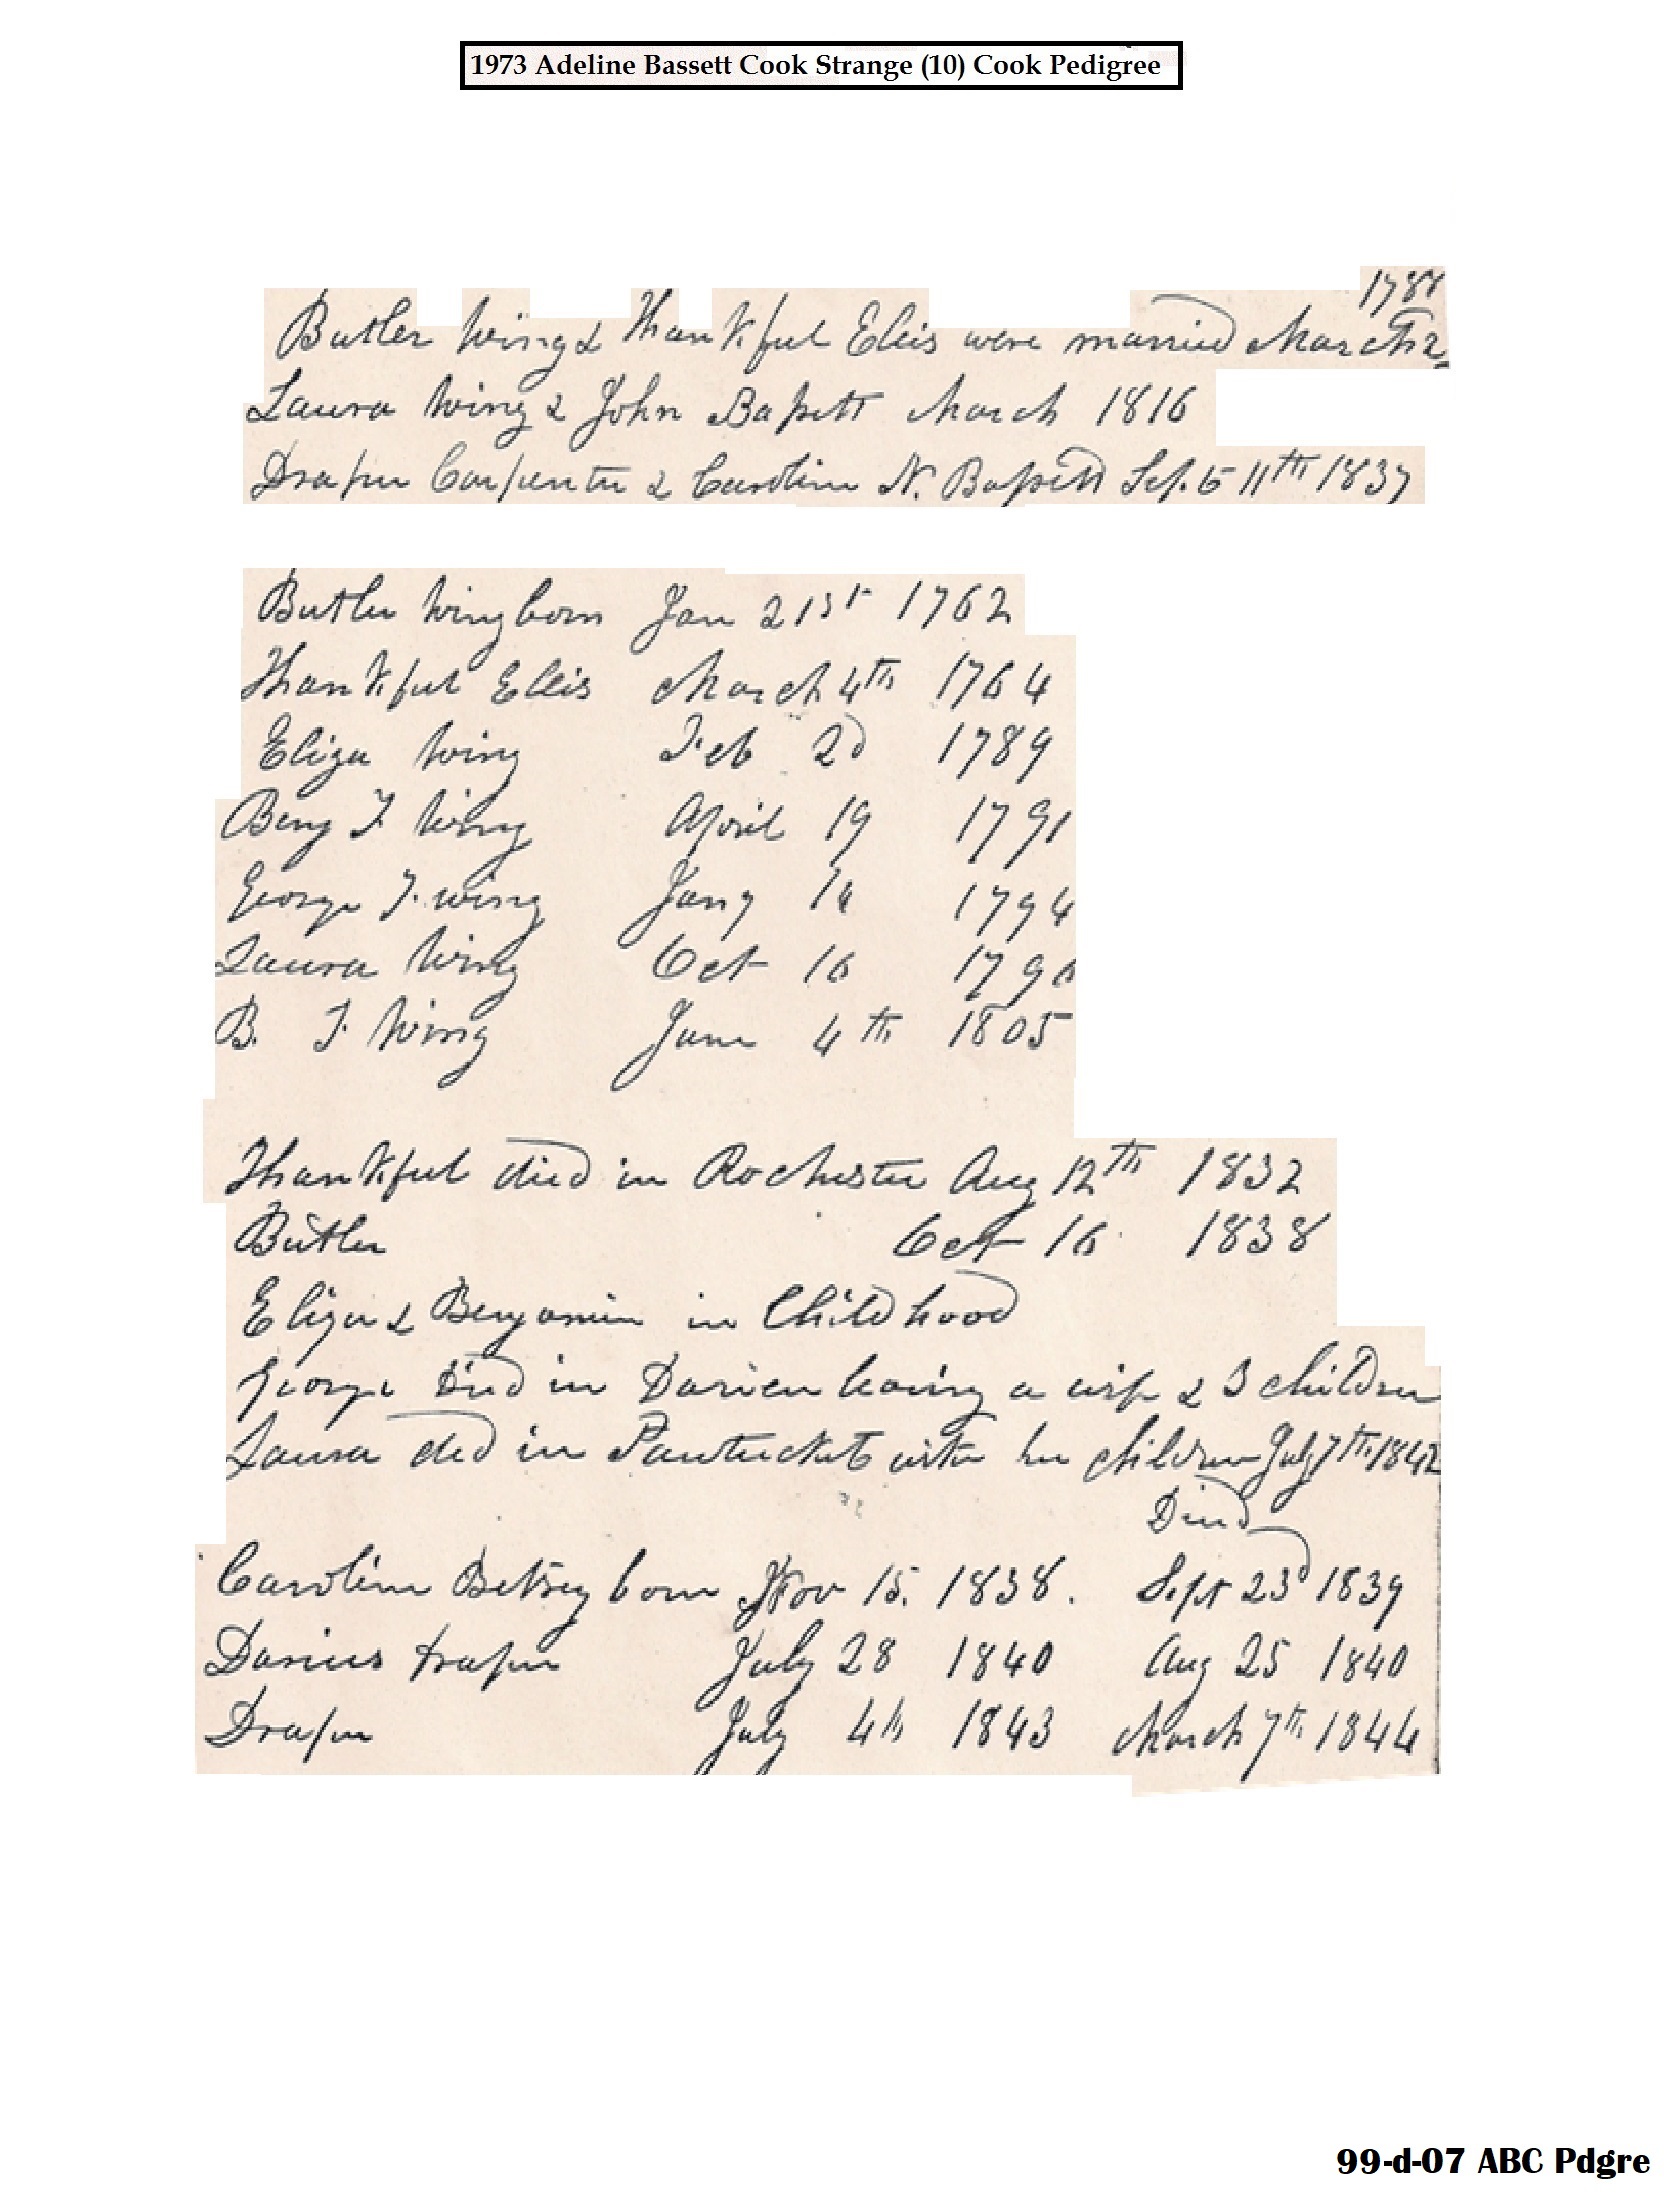 1973 Adeline Bassett Cook Strange (10) Cook Pedigree
1788
Butler Wing & Thankful Ellis were married March 2
Laura Wing & John Bassett March 1816
Draper Carpenter & Caroline N. Bassett Sept 11th 1837
Butler Wing born Jan 21st 1762
Thankful Ellis March 4th 1764
Eliza Wing Feb 2d 1789
Benj F Wing April 19 1791
George F. Wing Jany 14 1794
Laura Wing Oct 16 1796
B. F. Wing June 4th 1805
Thankful died in Rochester Aug 12th 1832
Butler Oct 16 1838
Eliza & Benjamin in Childhood
George Died in Darien leaving a wife & 3 children
Laura died in Pawtucket with her children July 7th 1842
Died
Caroline Betsey born Nov 15. 1838. Sept 23d 1839
Darius Draper July 28 1840 Aug 25 1840
Draper July 4th 1843 March 7th 1844
99-d-07 ABC Pdgre